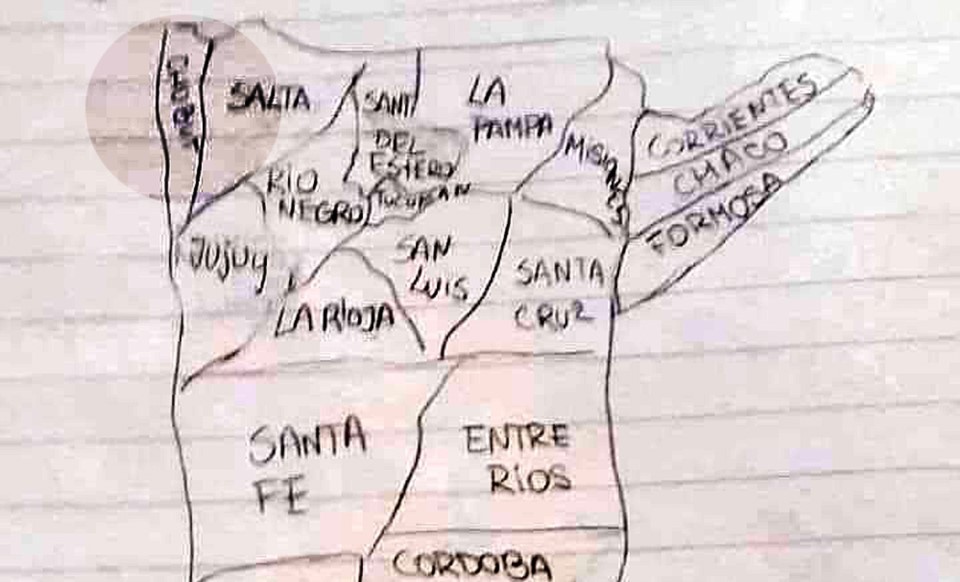 SALTA
SANT
DEL
ESTERO
LA
PAMPA
CORRIENTES
CHACO
FORMOSA
RÍO
NEGRO
TUCUMAN
JUJUY
SAN
LUIS
SANTA
CRUZ
LA RIOJA
SANTA
FE
ENTRE
RÍOS
CORDOBA